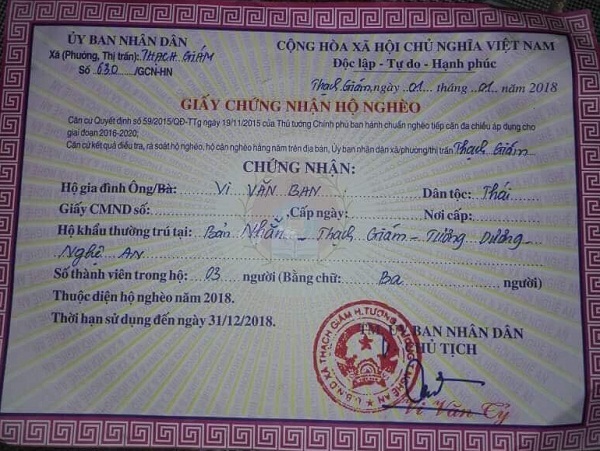 ỦY BAN NHÂN DÂN
Xã (Phường, Thị trấn): THẠCH GIÁM
Số 630 /GCN-HN
CỘNG HÒA XÃ HỘI CHỦ NGHĨA VIỆT NAM
Độc lập - Tự do - Hạnh phúc
Thạch Giám, ngày 01 tháng 01 năm 2018
GIẤY CHỨNG NHẬN HỘ NGHÈO
Căn cứ Quyết định số 59/2015/QĐ-TTg ngày 19/11/2015 của Thủ tướng Chính phủ ban hành chuẩn nghèo tiếp cận đa chiều áp dụng cho
giai đoạn 2016-2020;
Căn cứ kết quả điều tra, rà soát hộ nghèo, hộ cận nghèo hằng năm trên địa bàn, Ủy ban nhân dân xã/phường/thị trấn Thạch Giám
CHỨNG NHẬN:
Hộ gia đình Ông/Bà: VI VĂN BAN Dân tộc: Thái
Giấy CMND số: Cấp ngày: Nơi cấp:
Hộ khẩu thường trú tại: Bản Nhẫn - Thạch Giám - Tương Dương
Nghệ AN
Số thành viên trong hộ: 03 người (Bằng chữ: Ba người)
Thuộc diện hộ nghèo năm 2018.
Thời hạn sử dụng đến ngày 31/12/2018.
TM. ỦY BAN NHÂN DÂN
CHỦ TỊCH
U.B.N.D XÃ THẠCH GIÁM H.TƯƠNG NGHỆ AN
Vi Văn Tý